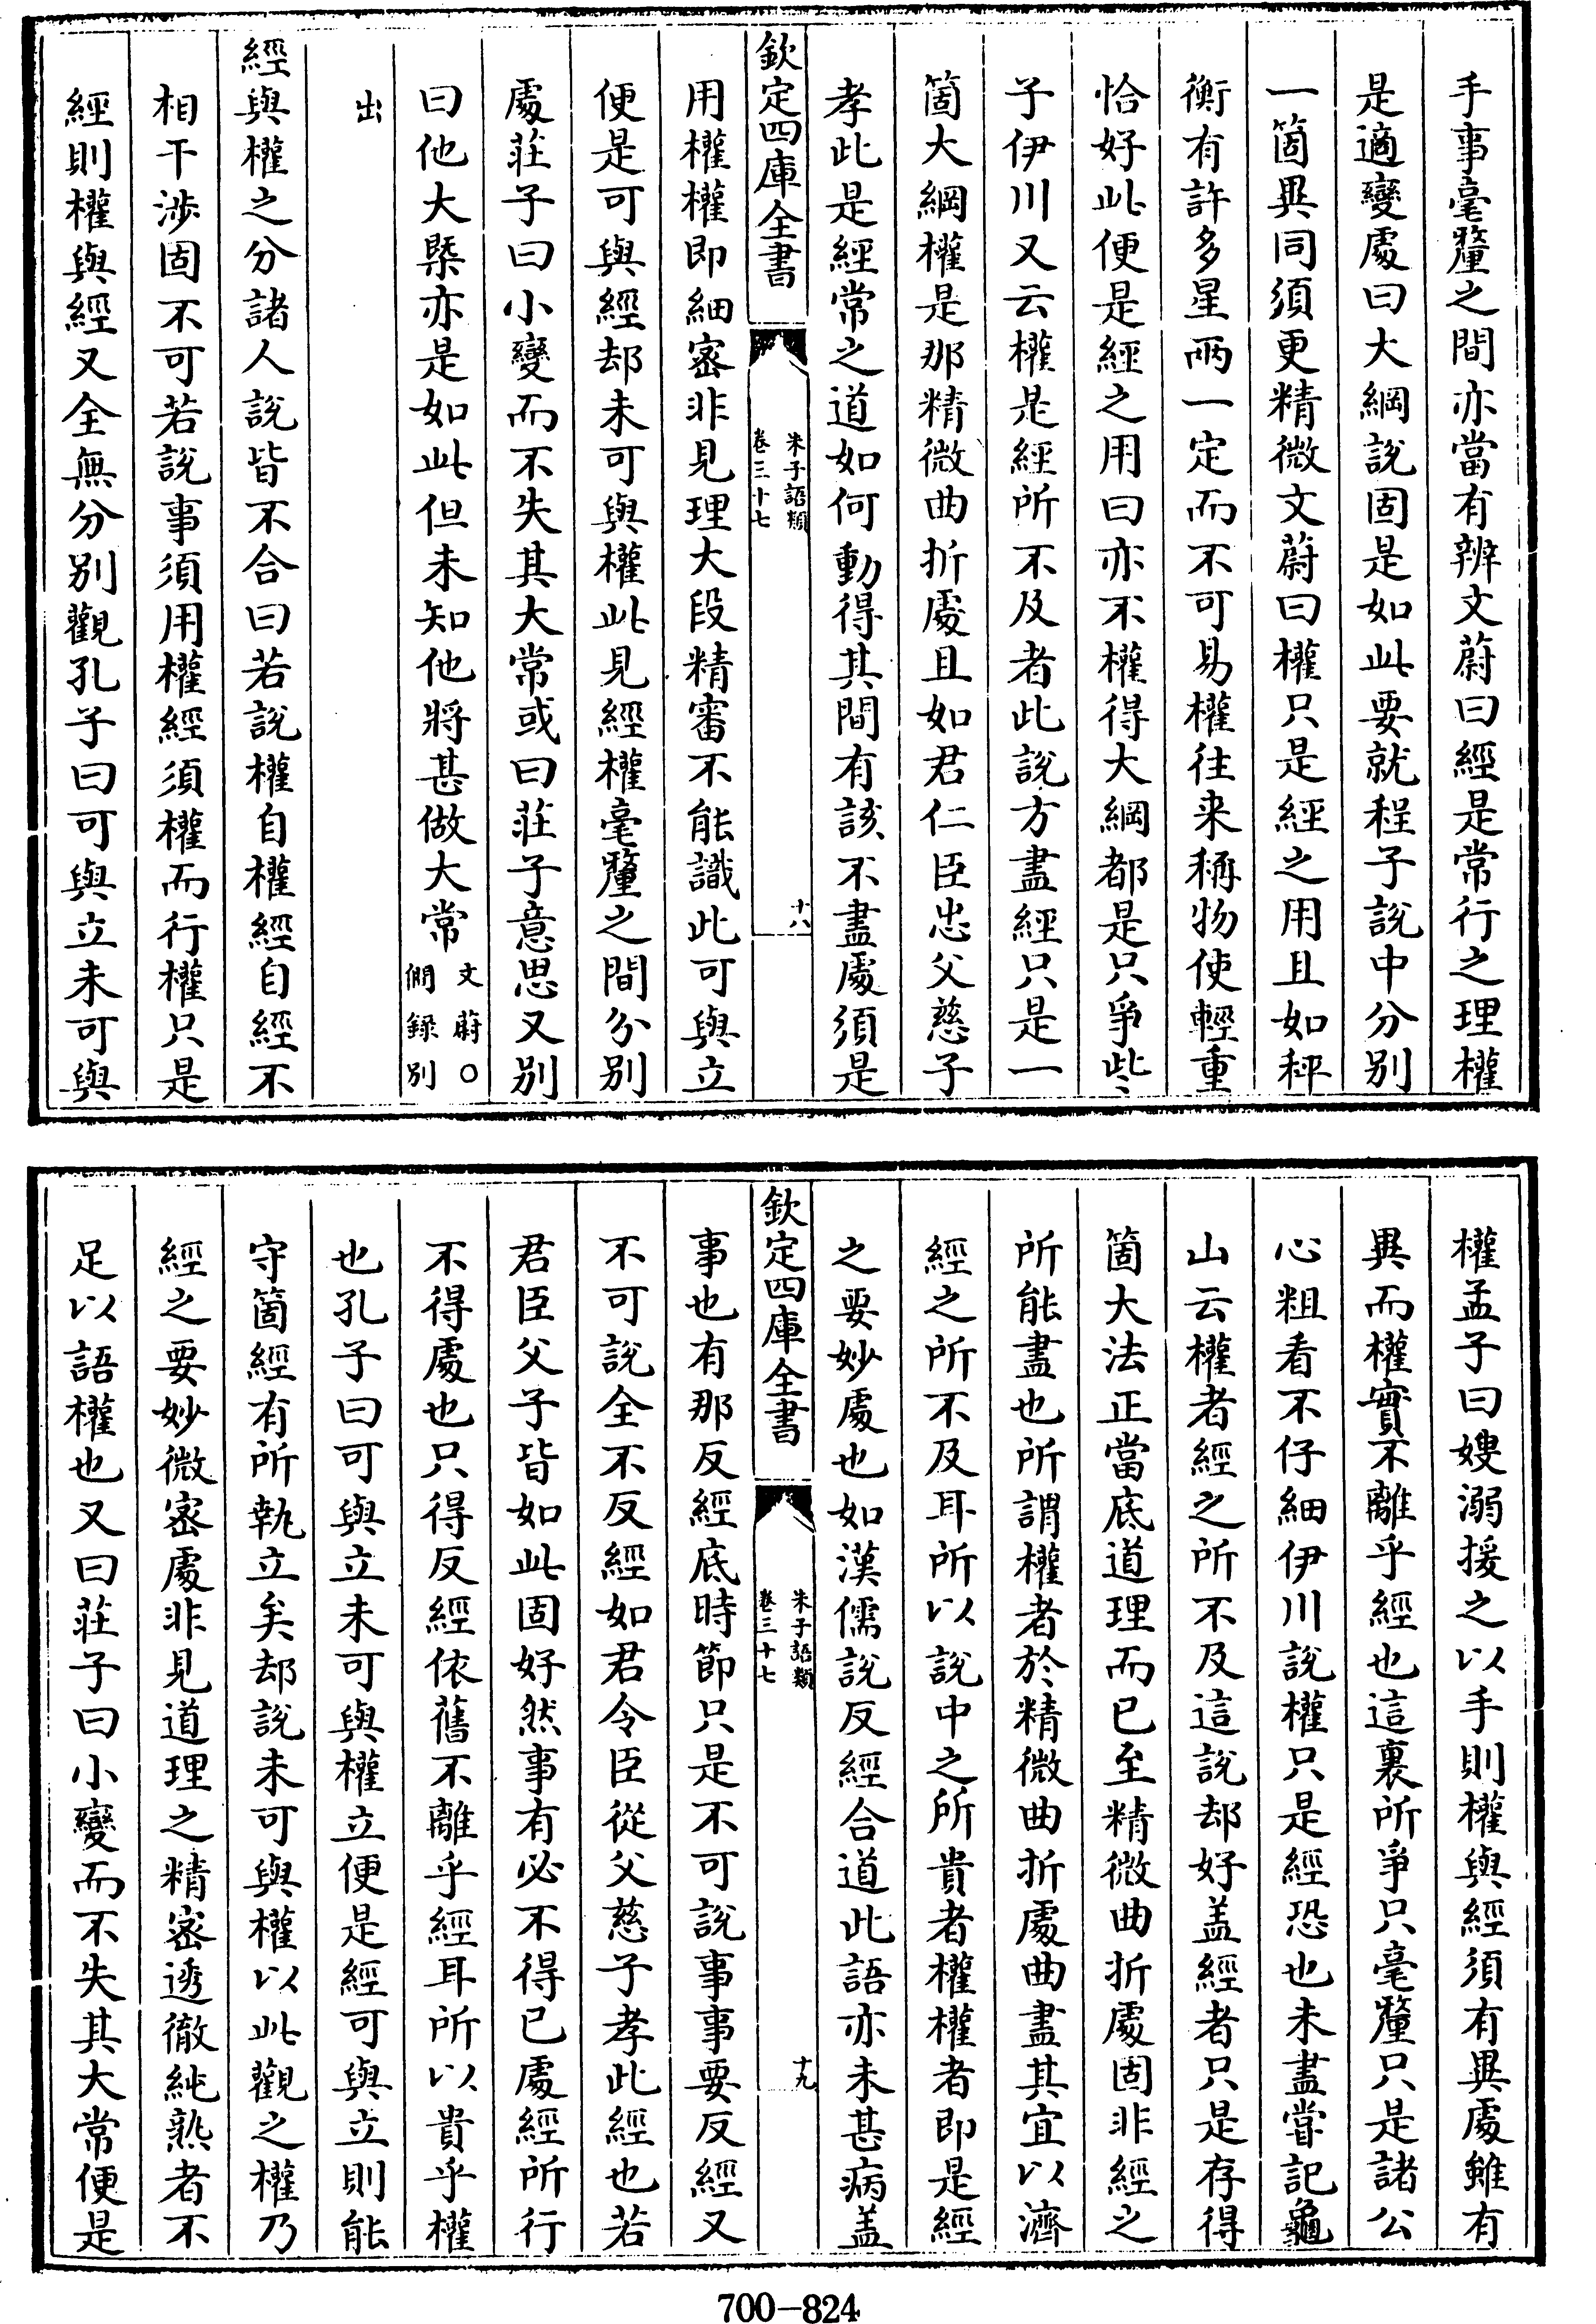 手事毫釐之間亦當有辨文蔚曰經是常行之理權
是適變處曰大綱說固是如此要就程子說中分別
一箇異同須更精微文蔚曰權只是經之用且如秤
衡有許多星兩一定而不可易權往来稱物使輕重
恰好此便是經之用曰亦不權得大綱都是只爭些
子伊川又云權是經所不及者此說方盡經只是一
箇大綱權是那精微曲折處且如君仁臣忠父慈子
孝此是經常之道如何動得其間有該不盡處須是
欽定四庫全書
朱子語類
卷三十七
十八
用權權即細密非見理大段精審不能識此可與立
便是可與經却未可與權此見經權毫釐之間分別
處莊子曰小變而不失其大常或曰莊子意思又別
曰他大槩亦是如此但未知他將甚做大常文蔚〇
僩録別
出
經與權之分諸人說皆不合曰若說權自權經自經不
相干涉固不可若說事須用權經須權而行權只是
經則權與經又全無分別觀孔子曰可與立未可與
權孟子曰嫂溺援之以手則權與經須有異處雖有
異而權實不離乎經也這裏所爭只毫釐只是諸公
心粗看不仔細伊川說權只是經恐也未盡嘗記龜
山云權者經之所不及這說却好盖經者只是存得
箇大法正當底道理而已至精微曲折處固非經之
所能盡也所謂權者於精微曲折處曲盡其宜以濟
經之所不及耳所以說中之所貴者權權者即是經
之要妙處也如漢儒說反經合道此語亦未甚病盖
欽定四庫全書
朱子語類
卷三十七
十九
事也有那反經底時節只是不可說事事要反經又
不可說全不反經如君令臣從父慈子孝此經也若
君臣父子皆如此固好然事有必不得已處經所行
不得處也只得反經依舊不離乎經耳所以貴乎權
也孔子曰可與立未可與權立便是經可與立則能
守箇經有所執立矣却說未可與權以此觀之權乃
經之要妙微密處非見道理之精密透徹純熟者不
足以語權也又曰莊子曰小變而不失其大常便是
700-824